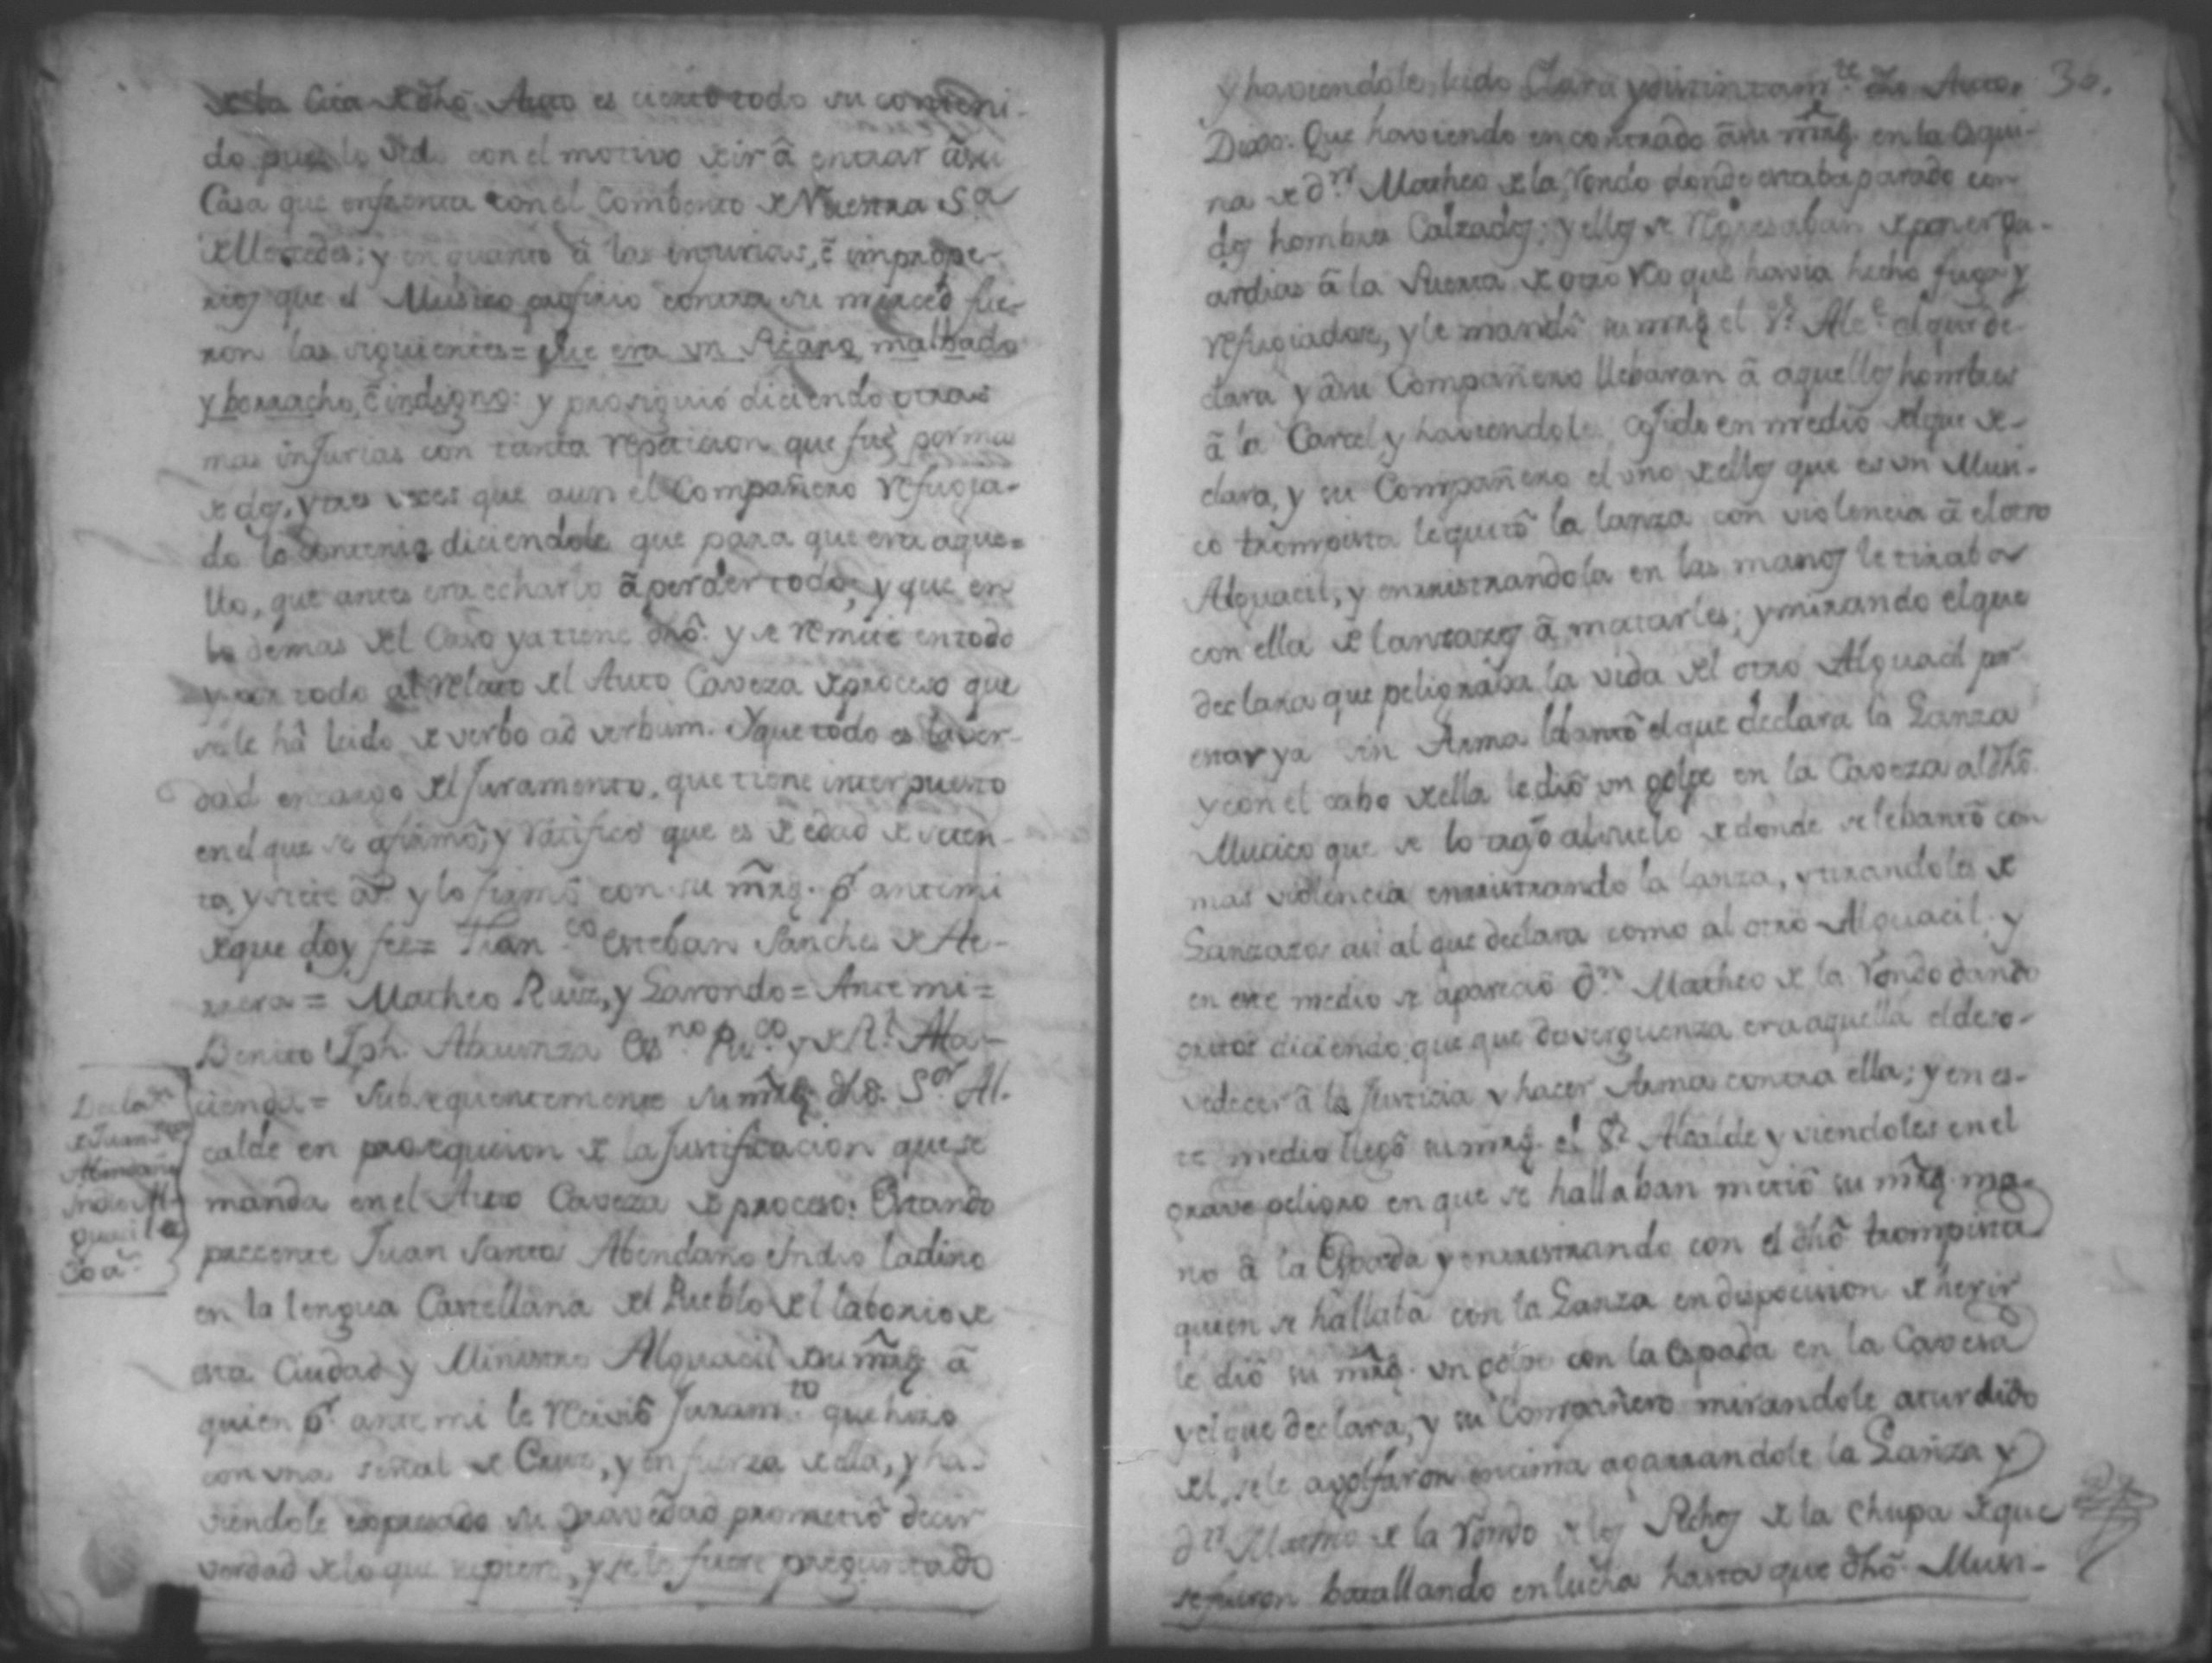 de la Cita de dho. Auto es cierto todo su conteni-
do pues lo vido con el motivo de ir â entrar âsu
Casa que enfrenta con el Combento de Nuestra S.a
de Mercedes; y en quanto â las injurias, ê imprope-
rios que el Musico profirio contra su merced fue-
ron las siguientes = que era un Picaro, malbado
y borracho, ê indigno: y prosiguió diciendo otras
mas injurias con tanta repeticion que fue por mas
de dos, y tres veces que aun el Compañero refugia-
do lo contenia diciendole que para que era aque-
llo, que antes era echarlo â perder todo, y que en
lo demas del Caso ya tiene dho. y se remite en todo
y por todo al relato del Auto Caveza de proceso que
se le hâ leido de verbo ad verbum. Y que todo es la ver-
dad encargo del Juramento, que tiene interpuesto
en el que se afirmô, y ratificô que es de edad de
ta, y siete a.s y lo firmô con su mrd. p.r ante mi
de que doy fee = Fran.co Esteban Sanches de He-
rrera = Matheo Ruiz, y Larondo = Ante mi =
Benito Jph. Abauinza Es.no Pu.co y de R.l Ha-
cienda = Subsequentemente su mrd. dho. S.or Al-
calde en prosequcion de la Justificacion que se
manda en el Auto Caveza de proceso: Estando
precente Juan Santos Abendaño Indio ladino
en la lengua Castellana del Pueblo del laborio de
esta Ciudad y Ministro Alguacil de su mrd. â
quien p.r ante mi le recivió Juram.to que hizo
con una señal de Cruz, y en fuerza de ella, y ha-
viendole expresado su gravedad prometiô decir
verdad de lo que supiere, y se le fuere preguntado
Declaz.n
de Juan S.tos
Abendaño
Indio Al-
guacil de
30 a.s
30.
y haviendole leido Clara y distintam.te dho Auto.
Dixo: Que haviendo encontrado âsu mrd. en la esqui-
na de d.n Matheo de la Rondo donde estaba parado con
dos hombres Calzados; y ellos se regresaban de poner gu-
ardias â la Puerta de otro reo que havia hecho fuga y
refugiadose, y le mandô su mrd. el S.r Alc.e al que de-
clara y âsu Compañero llebaran â aquellos hombres
â la Carcel y haviendoles cojido en medio el que de-
clara, y su Compañero el uno de ellos que es un Musi-
co trompista le quitô la lanza con violencia â el otro
Alguacil, y enrristrandola en las manos le tiraba
con ella de lanzazos â matarles; y mirando el que
declara que peligraba la vida del otro Alguacil por
estar ya sin Arma lebantô el que declara la Lanza
y con el cabo de ella le diô un golpe en la Caveza al dho.
Mucico que se lo trajo al suelo de donde se lebantô con
mas violencia enrristrando la lanza, y tirandoles de
Lanzazos asi al que declara como al otro Alguacil, y
en este medio se apareciô d.n Matheo de la Rondo dando
gritos diciendo que que desverguenza era aquella el deso-
vedecer â la Justicia y hacer Arma contra ella; y en es-
te medio llegô su mrd. el S.r Alcalde y viendoles en el
grave peligro en que se hallaban metiô su mrd. ma-
no â la Espada y enrristrando con el dho trompista
quien se hallaba con la Lanza en dispocision de herir
le diô su mrd. un golpe con la espada en la Cavesa
y el que declara, y su Compañero mirandole aturdido
del, se le agolfaron encima agarrandole la Lanza y
d.n Matheo de la Rondo de los Pechos de la Chupa de que
se fueron batallando en lucha hasta que dho. Musi-